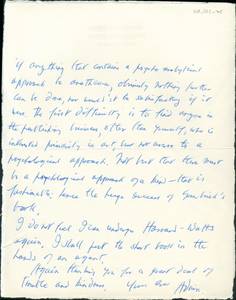 if anything that contains a psycho-analytical
approach is anathema, obviously nothing further
can be done, nor would it be satisfactory if it
were. The first difficulty is to find anyone in
the publishing business, other than yourself, who is
interested primarily in art, but not averse to a
psychological approach. Not but that there must
be a psychological approach of a kind — that is
fashionable: hence the huge success of Gombrich's
book.
I do not feel I can undergo Harvard - Watts
again. I shall put the short book in the
hands of an agent.
Again thanking you for a great deal of
trouble and kindness, Yours ever Adrian